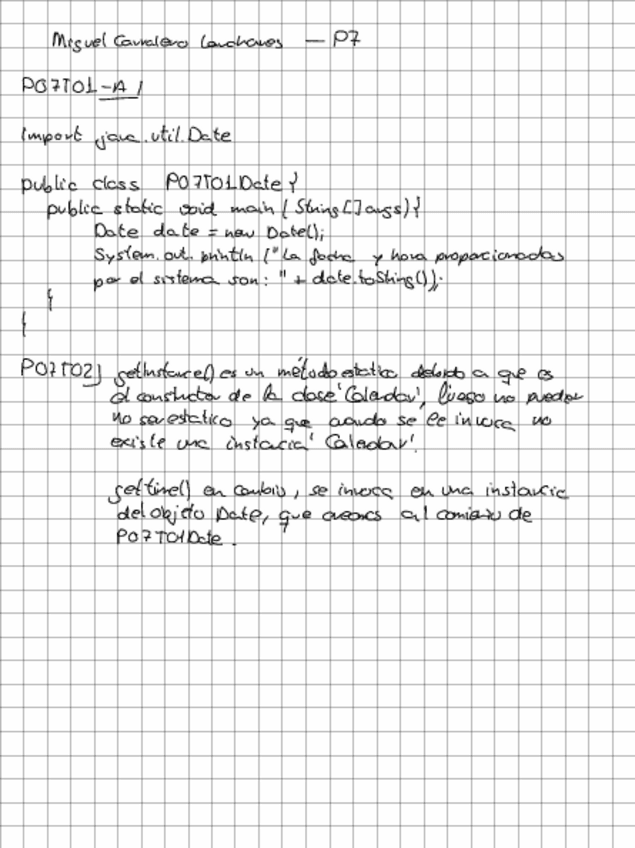 Miguel — P7
P07T01-A)
Import java.util.Date
public class P07T01Date {
public static void main (String[] args) {
Date date = new Date();
System.out.println ("La fecha y hora proporcionadas
por el sistema son: " + date.toString());
}
}
P07T02) getInstance() es un método estatico debido a que es
el constructor de la clase 'Caledar', luego no pueder
no ser estatico ya que cuando se le invoca no
existe una instancia 'Caledar'.
getTime() en cambio, se invoca en una instancia
del objeto Date, que creamos al comienzo de
P07T01Date.